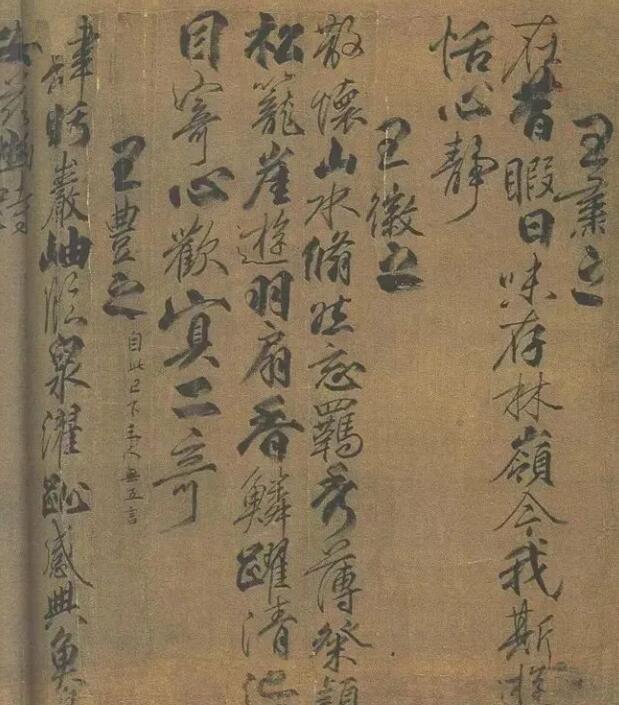 王肅之
在昔暇日味存林嶺今我斯
恬心靜
王徽之
散懷山水翛然忘羈秀薄粲穎
松籠崖遊羽扇霄鱗躍清池
目寄心歡冥二奇
王豐之
自此已下三人無五言
肆眄巖岫臨泉濯趾感興魚
茲幽